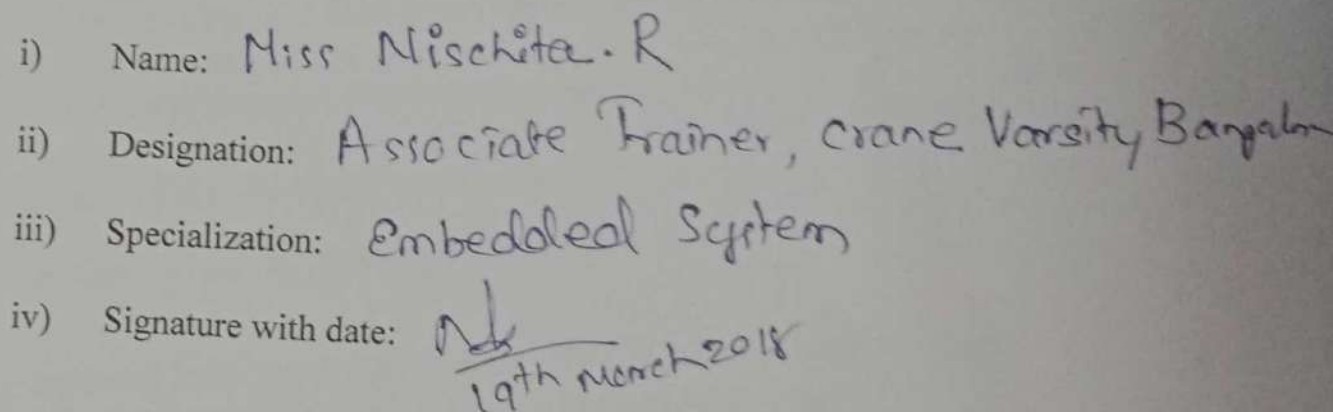 i) Name: Miss Nischita. R
ii) Designation: Associate Trainer, Crane Varsity Bangalore
iii) Specialization: Embedded System
iv) Signature with date:
19th March 2018